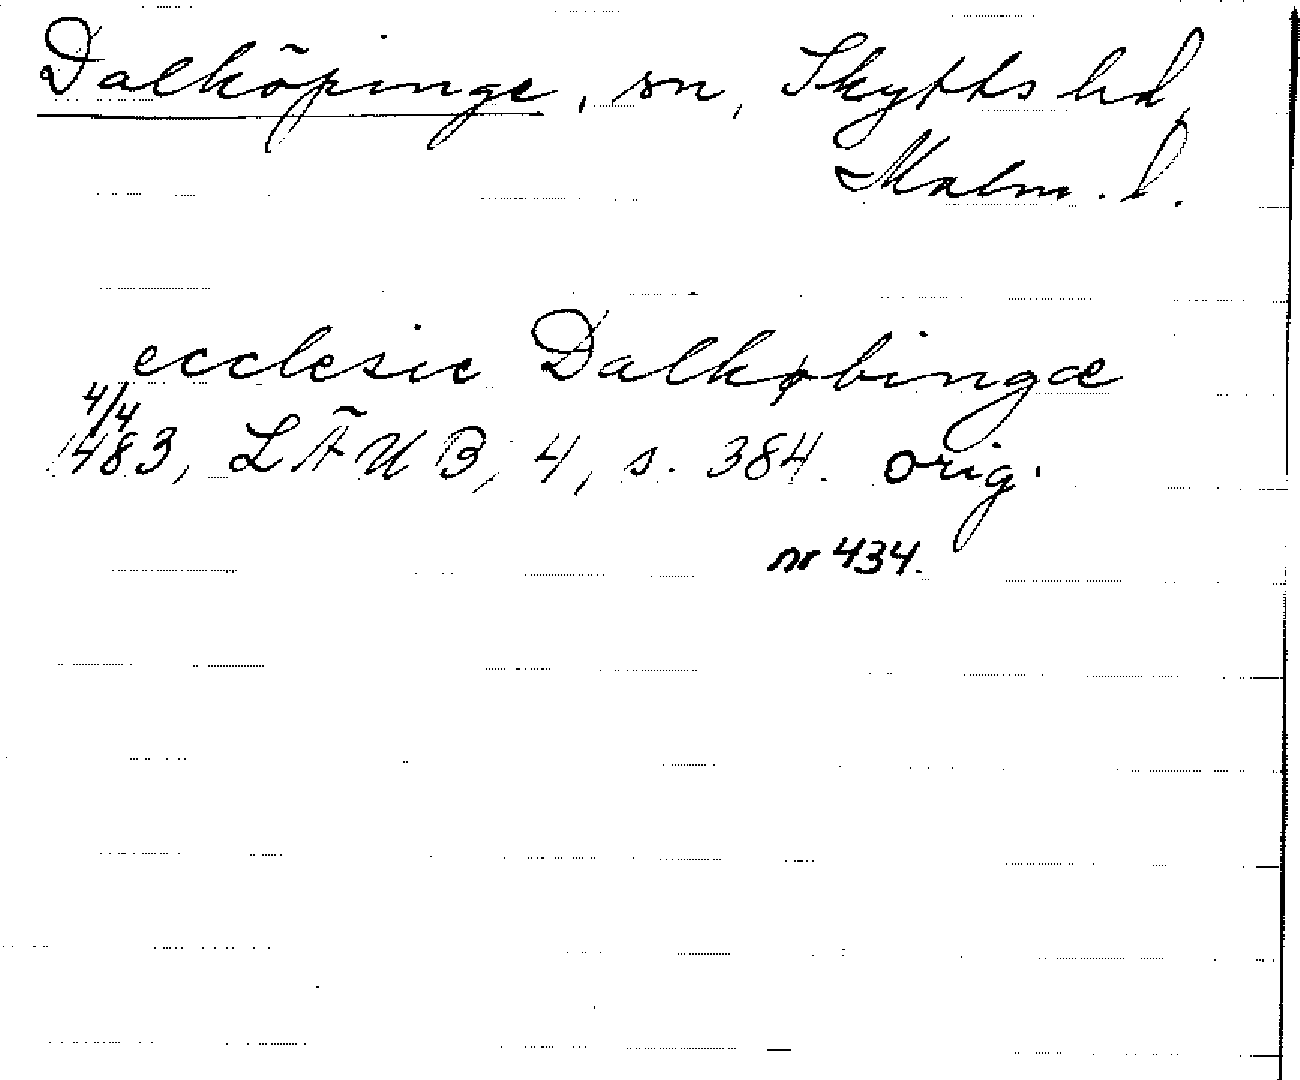 Dalköpinge, sn, Skytts hd,
Malm. l.
ecclesie Dalkøbingæ
4/4
1483, LÄUB, 4, s. 384. orig.
nr 434.